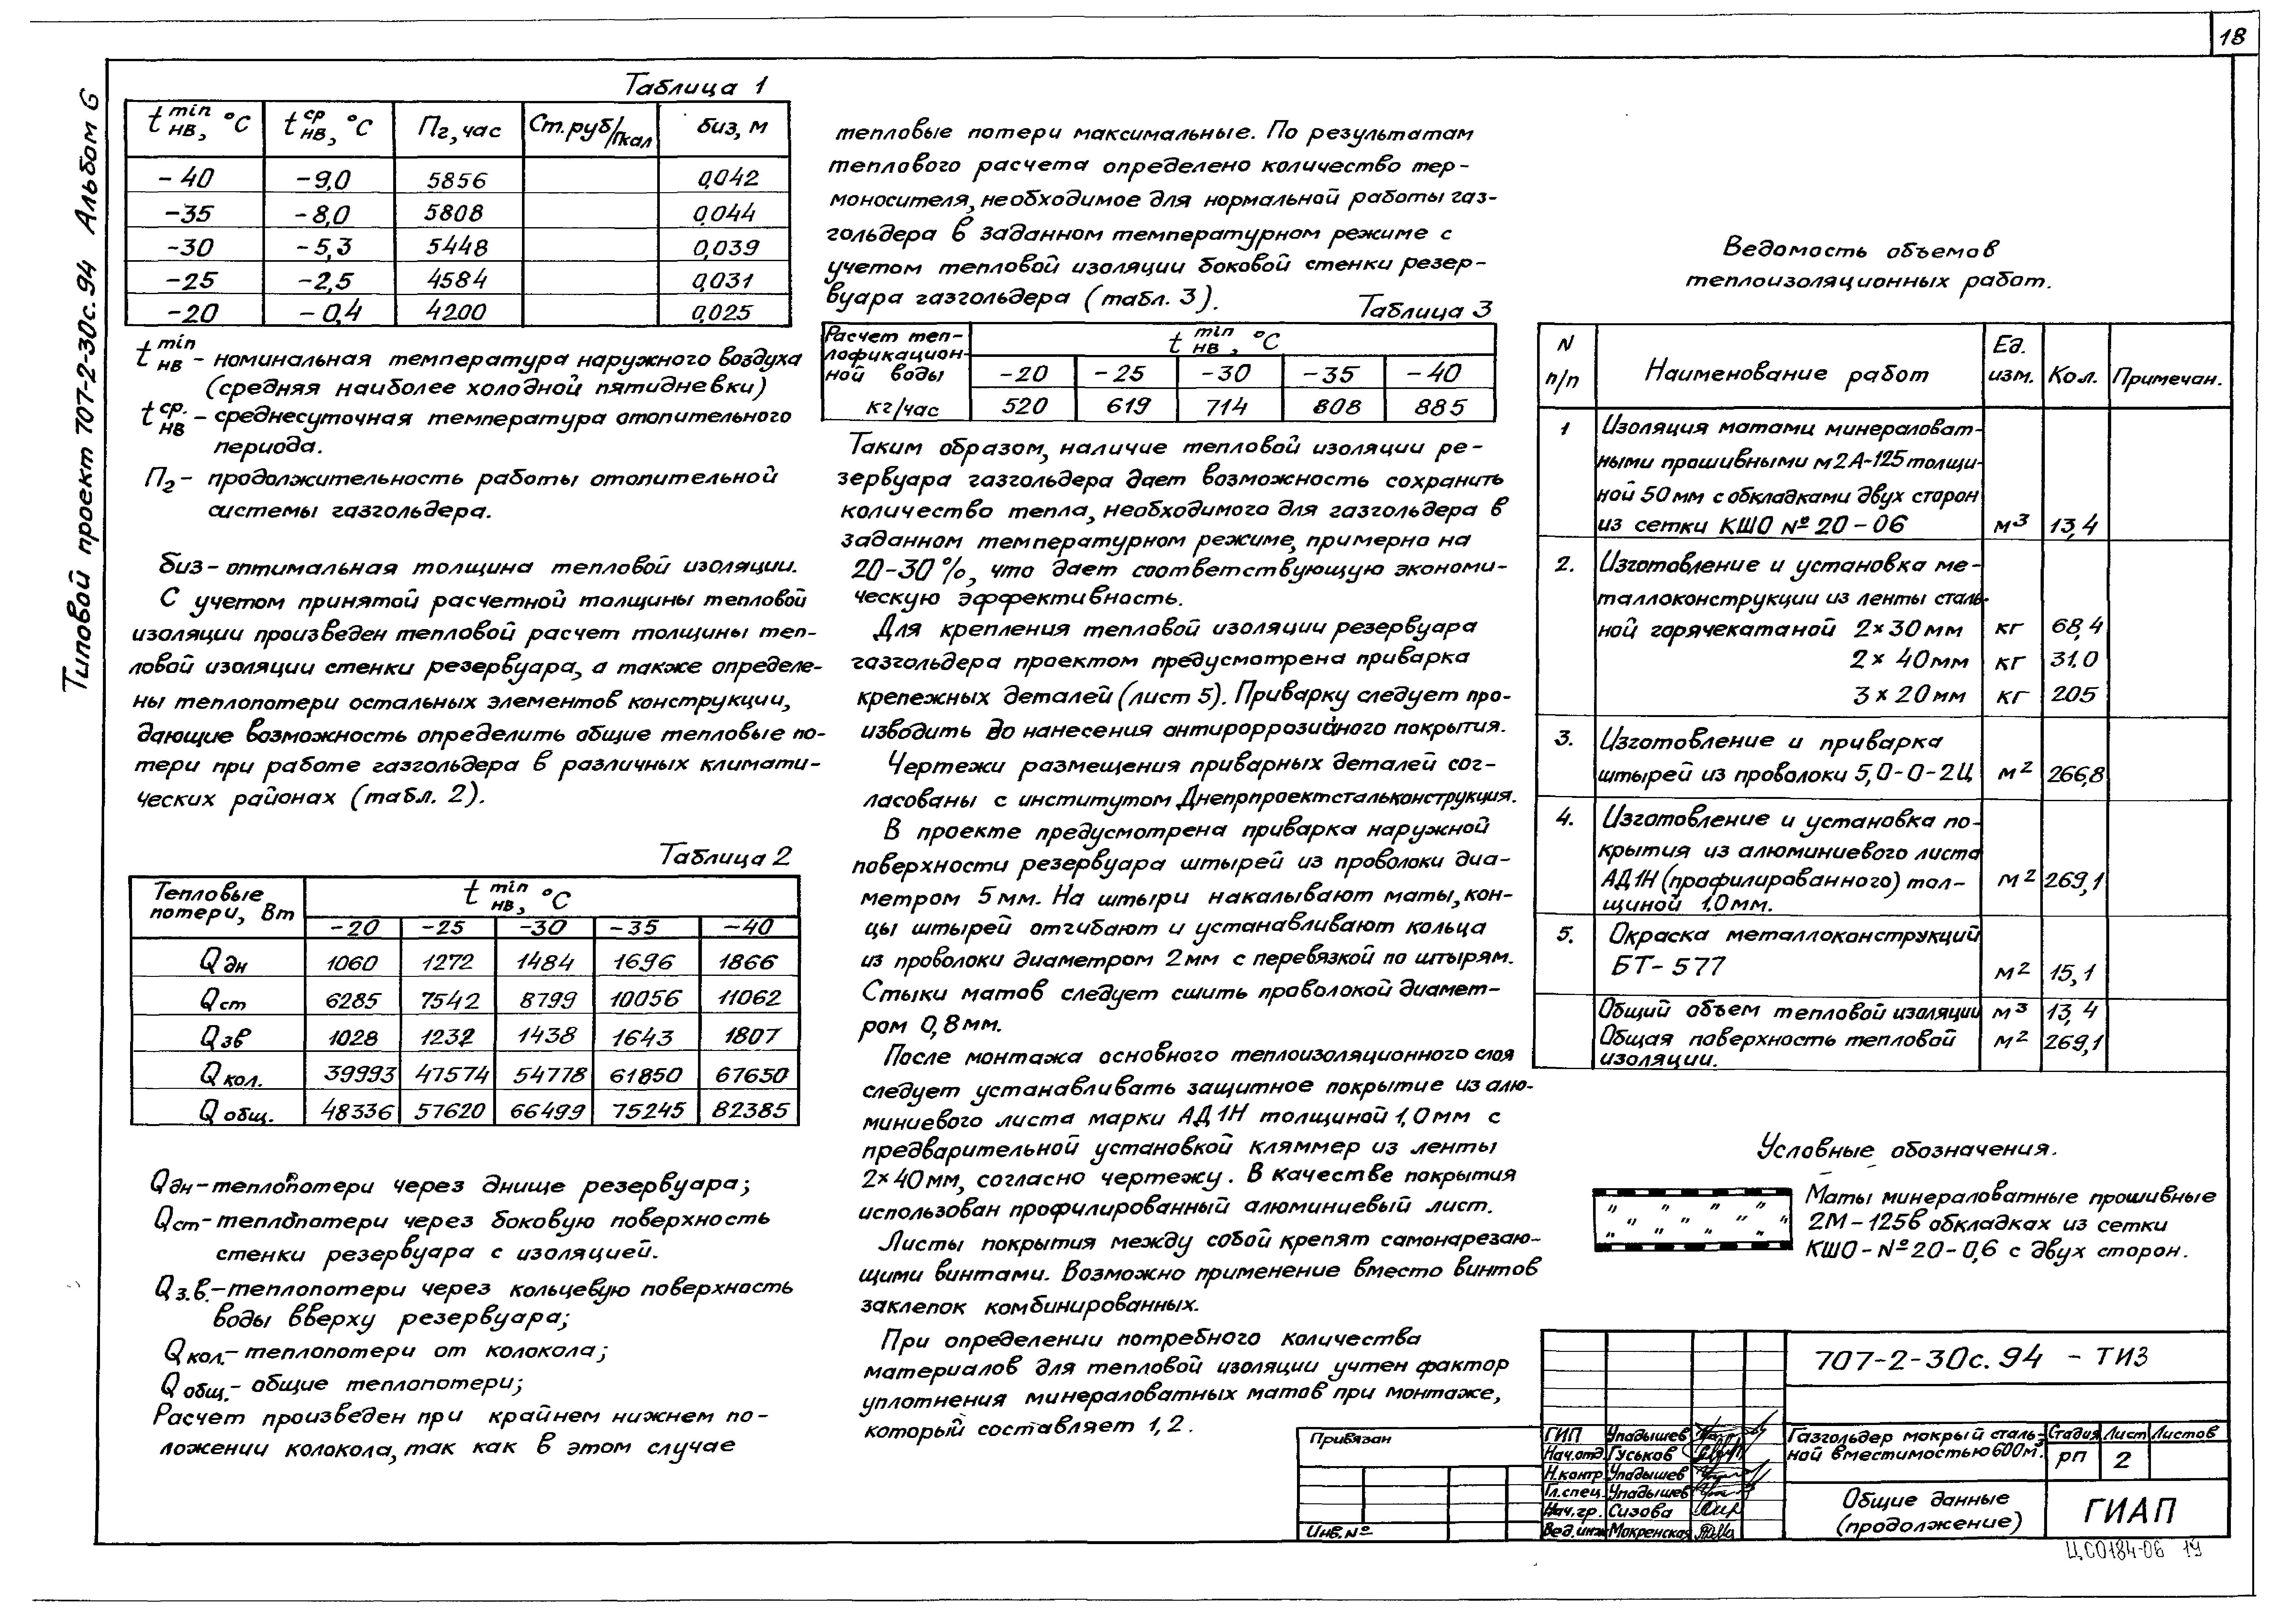 18
Типовой проект 707-2-30с.94 Альбом 6
Таблица 1
t min нв, °С t ср нв, °С Пг, час Ст. руб/Гкал биз, м
-40 -9,0 5856 0,042
-35 -8,0 5808 0,044
-30 -5,3 5448 0,039
-25 -2,5 4584 0,031
-20 -0,4 4200 0,025
t min нв - номинальная температура наружного воздуха
(средняя наиболее холодной пятидневки)
t ср. нв - среднесуточная температура отопительного
периода.
Пг - продолжительность работы отопительной
системы газгольдера.
биз - оптимальная толщина тепловой изоляции.
С учетом принятой расчетной толщины тепловой
изоляции произведен тепловой расчет толщины теп-
ловой изоляции стенки резервуара, а также определе-
ны теплопотери остальных элементов конструкции,
дающие возможность определить общие тепловые по-
тери при работе газгольдера в различных климати-
ческих районах (табл. 2).
Таблица 2
Тепловые потери, Вт t min нв, °С
-20 -25 -30 -35 -40
Qдн 1060 1272 1484 1696 1866
Qст 6285 7542 8799 10056 11062
Qзв 1028 1232 1438 1643 1807
Qкол. 39993 47574 54778 61850 67650
Qобщ. 48336 57620 66499 75245 82385
Qдн - теплопотери через днище резервуара;
Qст - теплопотери через боковую поверхность
стенки резервуара с изоляцией.
Qз.в. - теплопотери через кольцевую поверхность
воды вверху резервуара;
Qкол. - теплопотери от колокола;
Qобщ. - общие теплопотери;
Расчет произведен при крайнем нижнем по-
ложении колокола, так как в этом случае
тепловые потери максимальные. По результатам
теплового расчета определено количество тер-
моносителя, необходимое для нормальной работы газ-
гольдера в заданном температурном режиме с
учетом тепловой изоляции боковой стенки резер-
вуара газгольдера (табл. 3).
Таблица 3
Расчет теп-
лофикацион-
ной воды
t min нв, °С
-20 -25 -30 -35 -40
кг/час 520 619 714 808 885
Таким образом, наличие тепловой изоляции ре-
зервуара газгольдера дает возможность сохранить
количество тепла, необходимого для газгольдера в
заданном температурном режиме, примерно на
20-30%, что дает соответствующую экономи-
ческую эффективность.
Для крепления тепловой изоляции резервуара
газгольдера проектом предусмотрена приварка
крепежных деталей (лист 5). Приварку следует про-
изводить до нанесения антироррозийного покрытия.
Чертежи размещения приварных деталей сог-
ласованы с институтом Днепрпроектстальконструкция.
В проекте предусмотрена приварка наружной
поверхности резервуара штырей из проволоки диа-
метром 5 мм. На штыри накалывают маты, кон-
цы штырей отгибают и устанавливают кольца
из проволоки диаметром 2 мм с перевязкой по штырям.
Стыки матов следует сшить проволокой диамет-
ром 0,8 мм.
После монтажа основного теплоизоляционного слоя
следует устанавливать защитное покрытие из алю-
миниевого листа марки АД1Н толщиной 1,0 мм с
предварительной установкой кляммер из ленты
2×40 мм, согласно чертежу. В качестве покрытия
использован профилированный алюминиевый лист.
Листы покрытия между собой крепят самонарезаю-
щими винтами. Возможно применение вместо винтов
заклепок комбинированных.
При определении потребного количества
материалов для тепловой изоляции учтен фактор
уплотнения минераловатных матов при монтаже,
который составляет 1,2.
Ведомость объемов
теплоизоляционных работ.
N п/п Наименование работ Ед. изм. Кол. Примечан.
1 Изоляция матами минераловат-
ными прошивными м2А-125 толщи-
ной 50 мм с обкладками двух сторон
из сетки КШО №20-06 м3 13,4
2. Изготовление и установка ме-
таллоконструкции из ленты сталь-
ной горячекатаной 2×30 мм кг 68,4
2×40 мм кг 31.0
3×20 мм кг 205
3. Изготовление и приварка
штырей из проволоки 5,0-0-2Ц м2 266,8
4. Изготовление и установка по-
крытия из алюминиевого листа
АД1Н (профилированного) тол- м2 269,1
щиной 1,0 мм.
5. Окраска металлоконструкций
БТ-577 м2 15,1
Общий объем тепловой изоляции м3 13,4
Общая поверхность тепловой м2 269,1
изоляции.
Условные обозначения.
Маты минераловатные прошивные
2М-125 в обкладках из сетки
КШО-№20-0,6 с двух сторон.
Привязан
Инв.№
ГИП Упадышев
Нач.отд Гуськов
Н.контр Упадышев
Гл.спец. Упадышев
Нач.гр. Сизова
Вед.инж Мокренская
707-2-30с.94 - ТИЗ
Газгольдер мокрый сталь-
ной вместимостью 600м3.
Стадия Лист Листов
РП 2
Общие данные
(продолжение)
ГИАП
ЦС0184-06 19